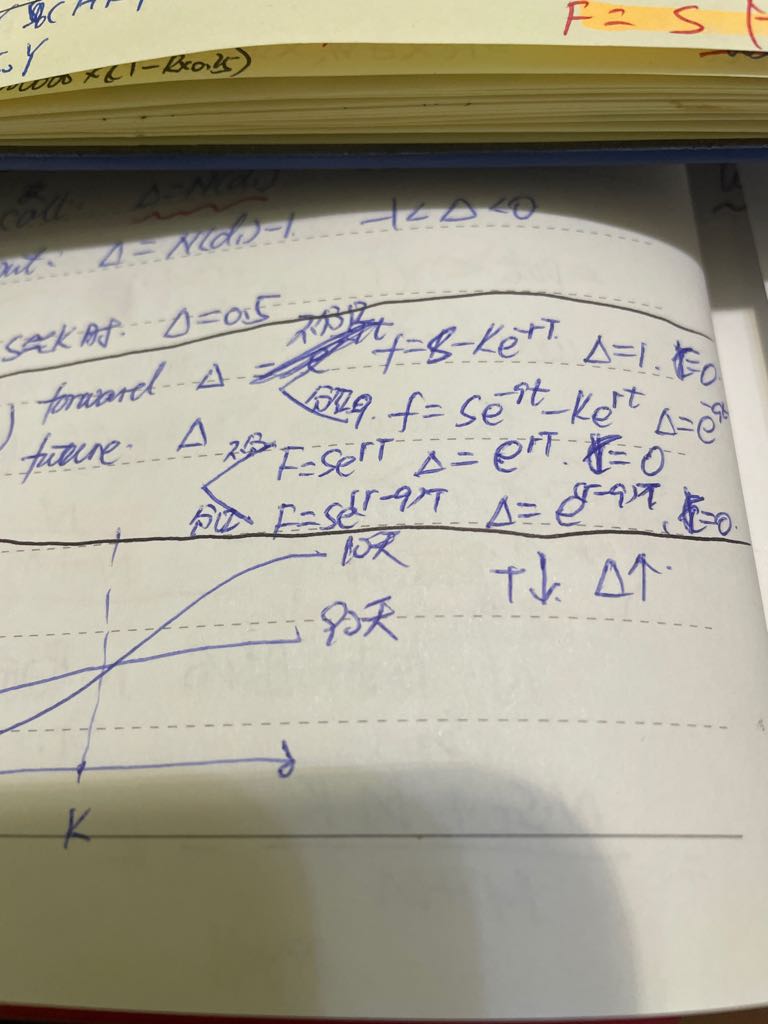 F = S
Y
×(1-R×0.25)
call: Δ=N(d₁)
put: Δ = N(d₁)-1 -1<Δ<0
S≈K时. Δ=0.5
forward Δ = 不分红 f=S-Ke^-rT. Δ=1. Γ=0
分红q. f=Se^-qt-Ke^rt Δ=e^-qt
future. Δ 不分 F=Se^rT Δ=e^rT. Γ=0
分红 F=Se^(r-q)T Δ=e^(r-q)T. Γ=0.
10天 T↓. Δ↑.
90天
K